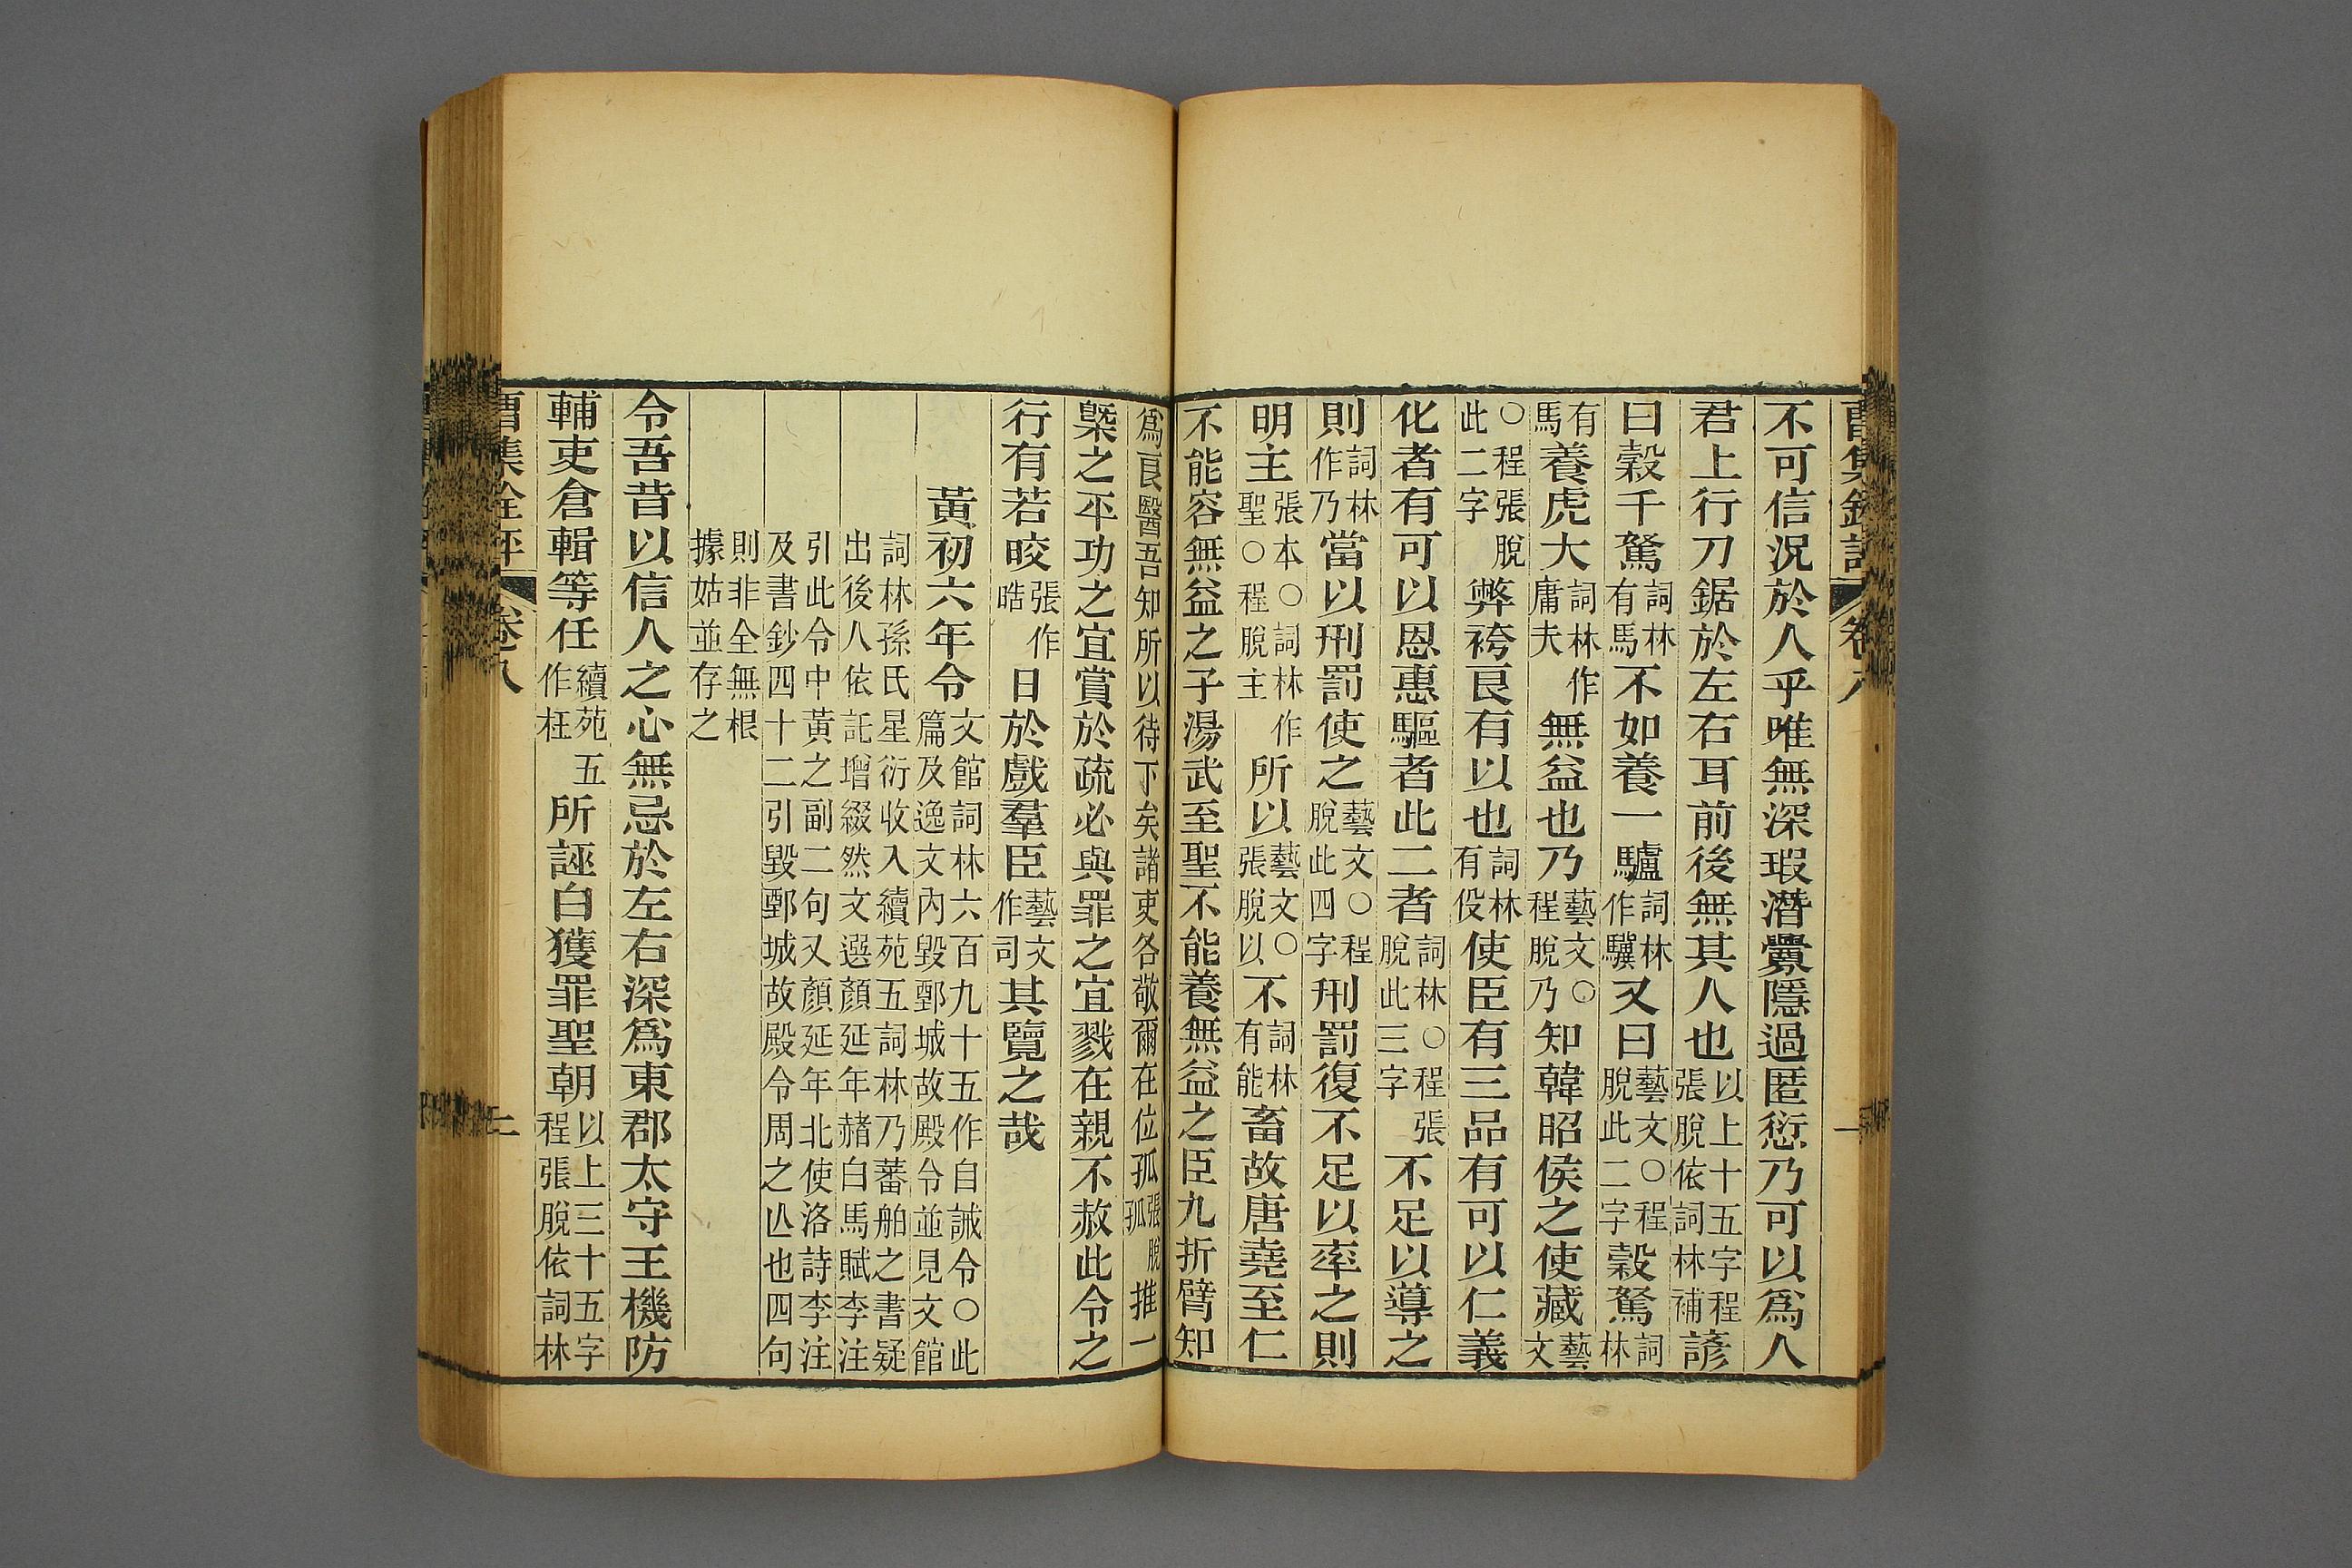 不可信況於人乎唯無深瑕潛釁隱過匿愆乃可以爲人
君上行刀鋸於左右耳前後無其人也以上十五字程張脫依詞林補諺
曰穀千駑詞林有馬不如養一驢詞林作驥又曰藝文○程脫此二字穀駑詞林
有馬養虎大詞林作庸夫無益也乃藝文○程脫乃知韓昭侯之使藏藝文
○程張脫此二字弊袴良有以也詞林有役使臣有三品有可以仁義
化者有可以恩惠驅者此二者詞林○程張脫此三字不足以導之
則詞林作乃當以刑罰使之藝文○程脫此四字刑罰復不足以率之則
明主張本○詞林作聖○程脫主所以藝文○張脫以不詞林有能畜故唐堯至仁
不能容無益之子湯武至聖不能養無益之臣九折臂知
爲良醫吾知所以待下矣諸吏各敬爾在位孤張脫孤推一
槩之平功之宜賞於疏必與罪之宜戮在親不赦此令之
行有若皎張作晧日於戲羣臣藝文作司其覽之哉
黃初六年令文館詞林六百九十五作自誡令○此篇及逸文內毀鄄城故殿令並見文館
詞林孫氏星衍收入續苑五詞林乃蕃舶之書疑出後人依託增綴然文選顏延年赭白馬賦李注
引此令中黃之副二句又顏延年北使洛詩李注及書鈔四十二引毀鄄城故殿令周之亾也四句
則非全無根據姑並存之
令吾昔以信人之心無忌於左右深爲東郡太守王機防
輔吏倉輯等任續苑五作枉所誣白獲罪聖朝以上三十五字程張脫依詞林
曹集銓評 卷八 二